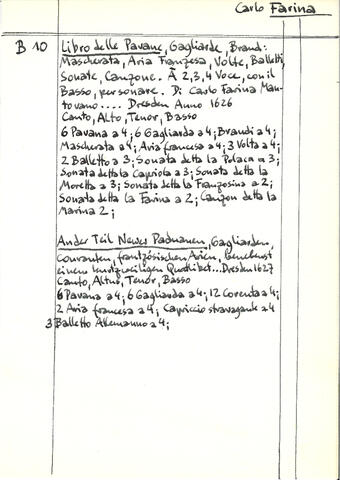 Carlo Farina
B 10 Libro delle Pavane, Gagliarde, Brand:
Mascherata, Aria Franzesa, Volte, Balletti,
Sonate, Canzone. A 2, 3, 4 Voce, con il
Basso, per sonare. Di Carlo Farina Man-
tovano.... Dresden Anno 1626
Canto, Alto, Tenor, Basso
6 Pavana a 4; 6 Gagliarda a 4; Brandi a 4;
Mascherata a 4; Aria francesa a 4; 3 Volta a 4;
2 Balletto a 3; Sonata detta la Polaca a 3;
Sonata detta la Capriola a 3; Sonata detta la
Moretta a 3; Sonata detta la Franzosina a 2;
Sonata detta la Farina a 2; Canzon detta la
Marina 2;
Ander Teil Newer Paduanen, Gagliarden,
Couranten, frantzösischen Arien, benebenst
einem kurtzweiligen Quotlibet... Dresden 1627
Canto, Altus, Tenor, Basso
6 Pavana a 4; 6 Gagliarda a 4; 12 Corenta a 4;
2 Aria francesa a 4; Capriccio stravagante a 4
3 Balletto Allemanno a 4;